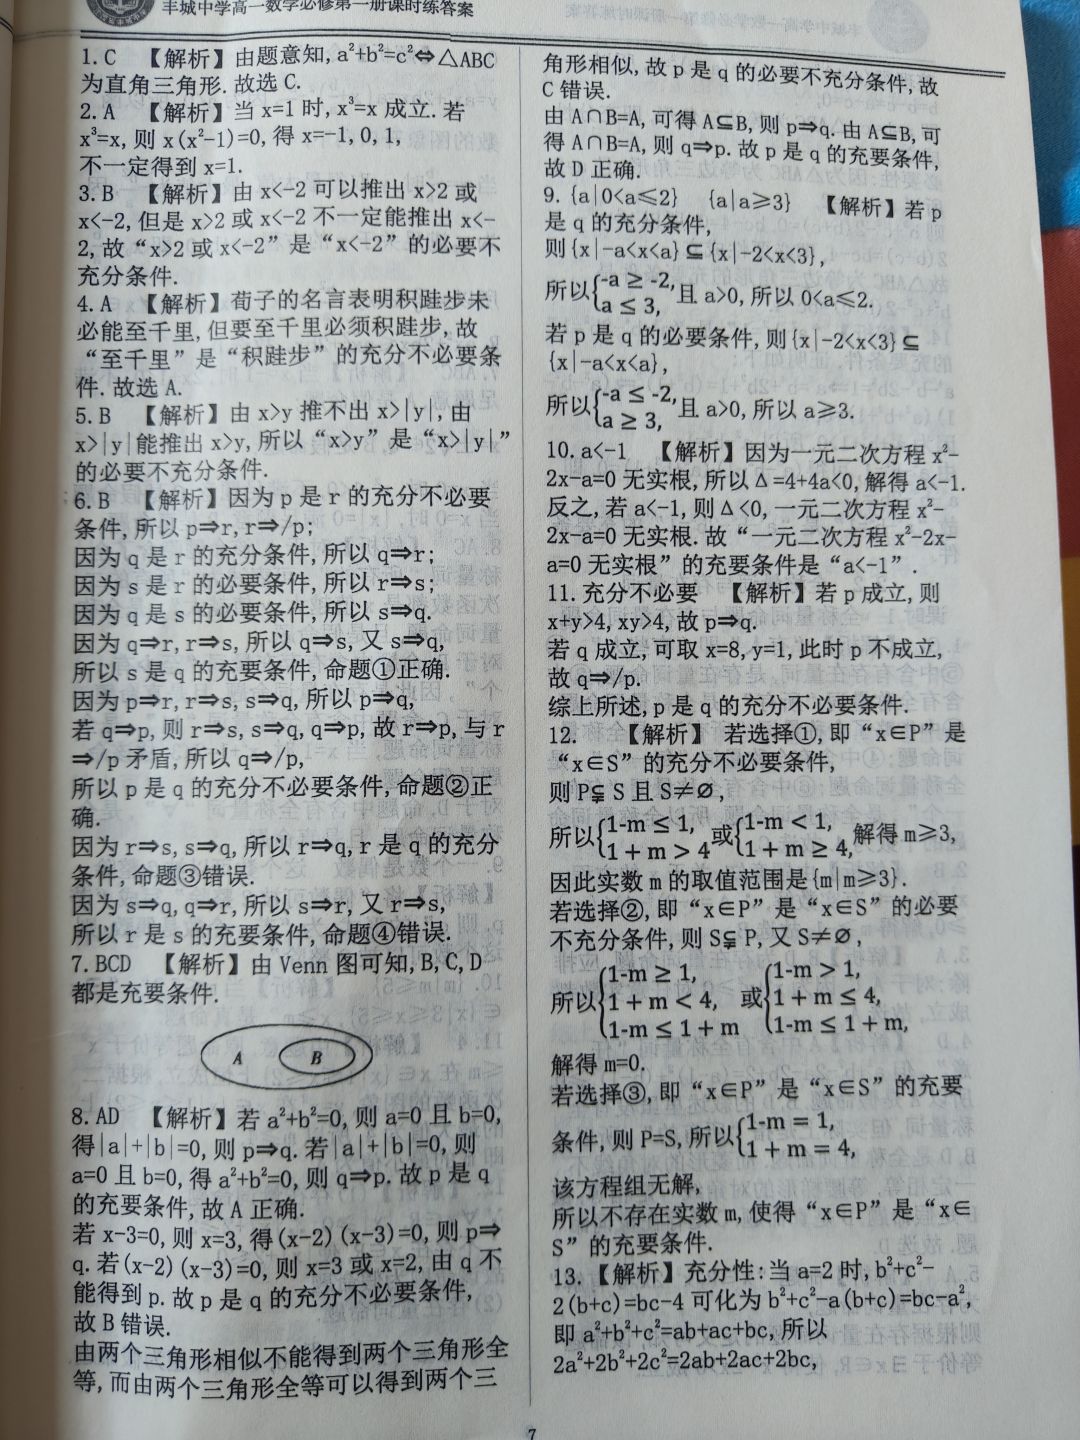 丰城中学高一数学必修第一册课时练答案
1.C 【解析】由题意知,a²+b²=c²⇔△ABC
为直角三角形.故选 C.
2.A 【解析】当 x=1 时,x³=x 成立.若
x³=x,则 x(x²-1)=0,得 x=-1,0,1,
不一定得到 x=1.
3.B 【解析】由 x<-2 可以推出 x>2 或
x<-2,但是 x>2 或 x<-2 不一定能推出 x<-
2,故“x>2 或 x<-2”是“x<-2”的必要不
充分条件.
4.A 【解析】荀子的名言表明积跬步未
必能至千里,但要至千里必须积跬步,故
“至千里”是“积跬步”的充分不必要条
件.故选 A.
5.B 【解析】由 x>y 推不出 x>|y|,由
x>|y|能推出 x>y,所以“x>y”是“x>|y|”
的必要不充分条件.
6.B 【解析】因为 p 是 r 的充分不必要
条件,所以 p⇒r,r⇒/p;
因为 q 是 r 的充分条件,所以 q⇒r;
因为 s 是 r 的必要条件,所以 r⇒s;
因为 q 是 s 的必要条件,所以 s⇒q.
因为 q⇒r,r⇒s,所以 q⇒s,又 s⇒q,
所以 s 是 q 的充要条件,命题①正确.
因为 p⇒r,r⇒s,s⇒q,所以 p⇒q,
若 q⇒p,则 r⇒s,s⇒q,q⇒p,故 r⇒p,与 r
⇒/p 矛盾,所以 q⇒/p,
所以 p 是 q 的充分不必要条件,命题②正
确.
因为 r⇒s,s⇒q,所以 r⇒q,r 是 q 的充分
条件,命题③错误.
因为 s⇒q,q⇒r,所以 s⇒r,又 r⇒s,
所以 r 是 s 的充要条件,命题④错误.
7.BCD 【解析】由 Venn 图可知,B,C,D
都是充要条件.
A B
8.AD 【解析】若 a²+b²=0,则 a=0 且 b=0,
得|a|+|b|=0,则 p⇒q.若|a|+|b|=0,则
a=0 且 b=0,得 a²+b²=0,则 q⇒p.故 p 是 q
的充要条件,故 A 正确.
若 x-3=0,则 x=3,得(x-2)(x-3)=0,则 p⇒
q.若(x-2)(x-3)=0,则 x=3 或 x=2,由 q 不
能得到 p.故 p 是 q 的充分不必要条件,
故 B 错误.
由两个三角形相似不能得到两个三角形全
等,而由两个三角形全等可以得到两个三
角形相似,故 p 是 q 的必要不充分条件,故
C 错误.
由 A∩B=A,可得 A⊆B,则 p⇒q.由 A⊆B,可
得 A∩B=A,则 q⇒p.故 p 是 q 的充要条件,
故 D 正确.
9.{a|0<a≤2} {a|a≥3} 【解析】若 p
是 q 的充分条件,
则{x|-a<x<a}⊆{x|-2<x<3},
所以{-a ≥ -2, a ≤ 3, 且 a>0,所以 0<a≤2.
若 p 是 q 的必要条件,则{x|-2<x<3}⊆
{x|-a<x<a},
所以{-a ≤ -2, a ≥ 3, 且 a>0,所以 a≥3.
10.a<-1 【解析】因为一元二次方程 x²-
2x-a=0 无实根,所以 Δ=4+4a<0,解得 a<-1.
反之,若 a<-1,则 Δ<0,一元二次方程 x²-
2x-a=0 无实根.故“一元二次方程 x²-2x-
a=0 无实根”的充要条件是“a<-1”.
11.充分不必要 【解析】若 p 成立,则
x+y>4,xy>4,故 p⇒q.
若 q 成立,可取 x=8,y=1,此时 p 不成立,
故 q⇒/p.
综上所述,p 是 q 的充分不必要条件.
12. 【解析】 若选择①,即“x∈P”是
“x∈S”的充分不必要条件,
则 P⫋S 且 S≠∅,
所以{1-m ≤ 1, 1 + m > 4 或{1-m < 1, 1 + m ≥ 4, 解得 m≥3,
因此实数 m 的取值范围是{m|m≥3}.
若选择②,即“x∈P”是“x∈S”的必要
不充分条件,则 S⫋P,又 S≠∅,
所以{1-m ≥ 1, 1 + m < 4, 1-m ≤ 1 + m 或{1-m > 1, 1 + m ≤ 4, 1-m ≤ 1 + m,
解得 m=0.
若选择③,即“x∈P”是“x∈S”的充要
条件,则 P=S,所以{1-m = 1, 1 + m = 4,
该方程组无解,
所以不存在实数 m,使得“x∈P”是“x∈
S”的充要条件.
13.【解析】充分性:当 a=2 时,b²+c²-
2(b+c)=bc-4 可化为 b²+c²-a(b+c)=bc-a²,
即 a²+b²+c²=ab+ac+bc,所以
2a²+2b²+2c²=2ab+2ac+2bc,
7